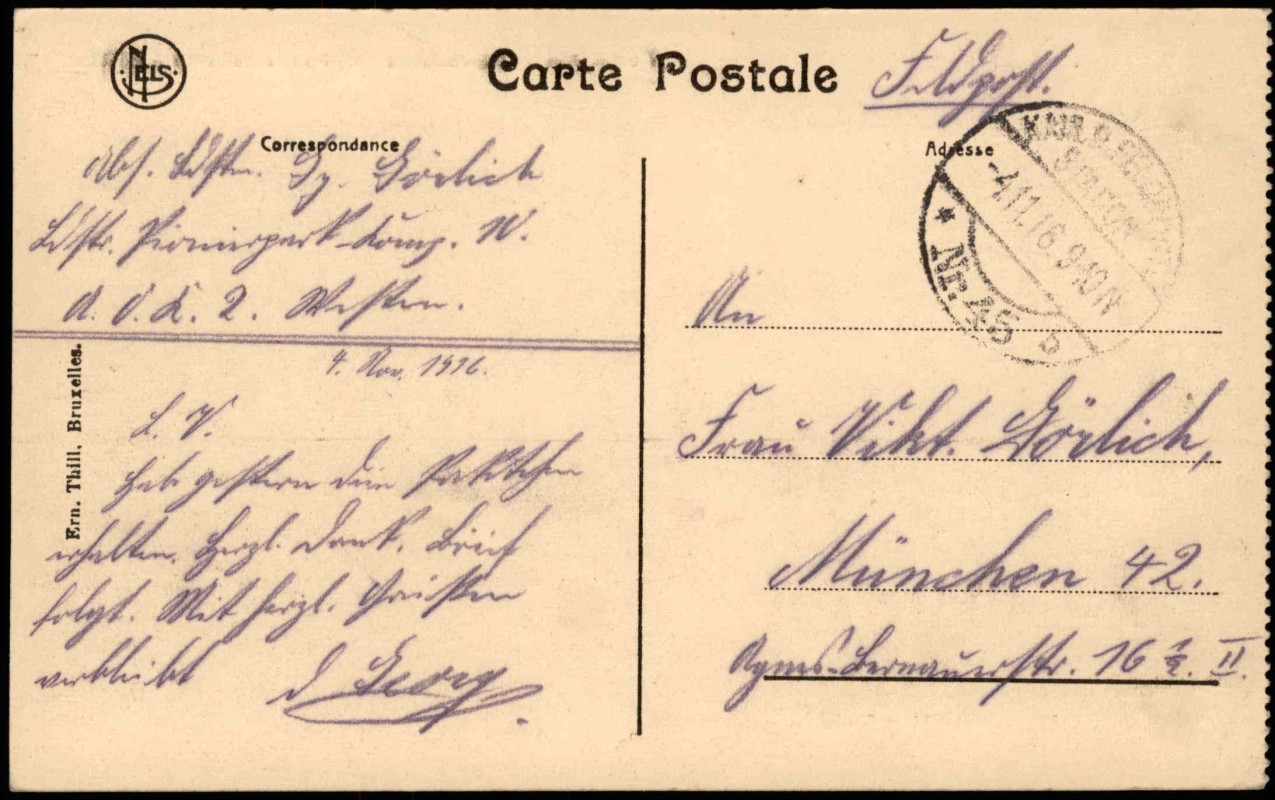 NELS
Carte Postale
Feldpost.
Correspondance
Adresse
Abs. Ldstm. Gg. Görlich
Ldstr. Pionierpark-Komp. N.
A. O. K. 2. Westen.
4. Nov. 1916.
L. V.
Hab gestern Dein Paketchen
erhalten. Herzl. Dank. Brief
folgt. Mit herzl. Grüßen
verbleibt d Georg
Ern. Thill. Bruxelles.
KAIS. D. FELDPOST
STATION
-4.11.16. 9-10 N
* Nr. 45 b
An
Frau Vikt. Görlich,
München 42.
Agnes-Bernauerstr. 16 ½. II.